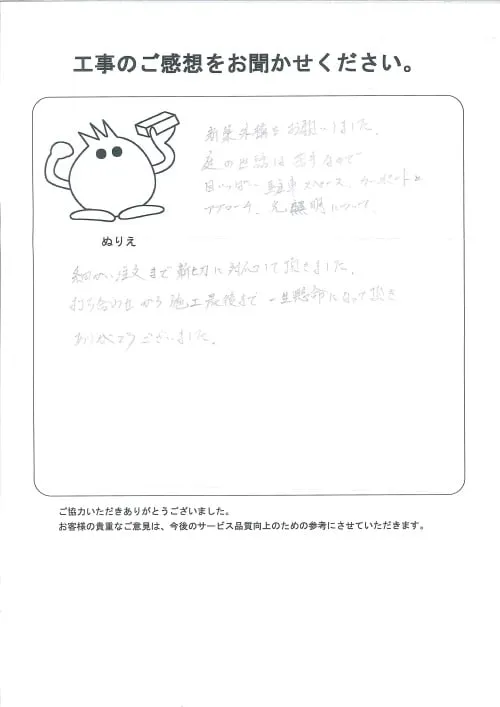 工事のご感想をお聞かせください。
新築外構をお願いしました。
庭の世話は苦手なので
目いっぱい駐車スペース、カーポートと
アプローチ、元照明について
ぬりえ
細かい注文まで親切に対応して頂きました。
打ち合わせから施工最後まで一生懸命になって頂き
ありがとうございました。
ご協力いただきありがとうございました。
お客様の貴重なご意見は、今後のサービス品質向上のための参考にさせていただきます。